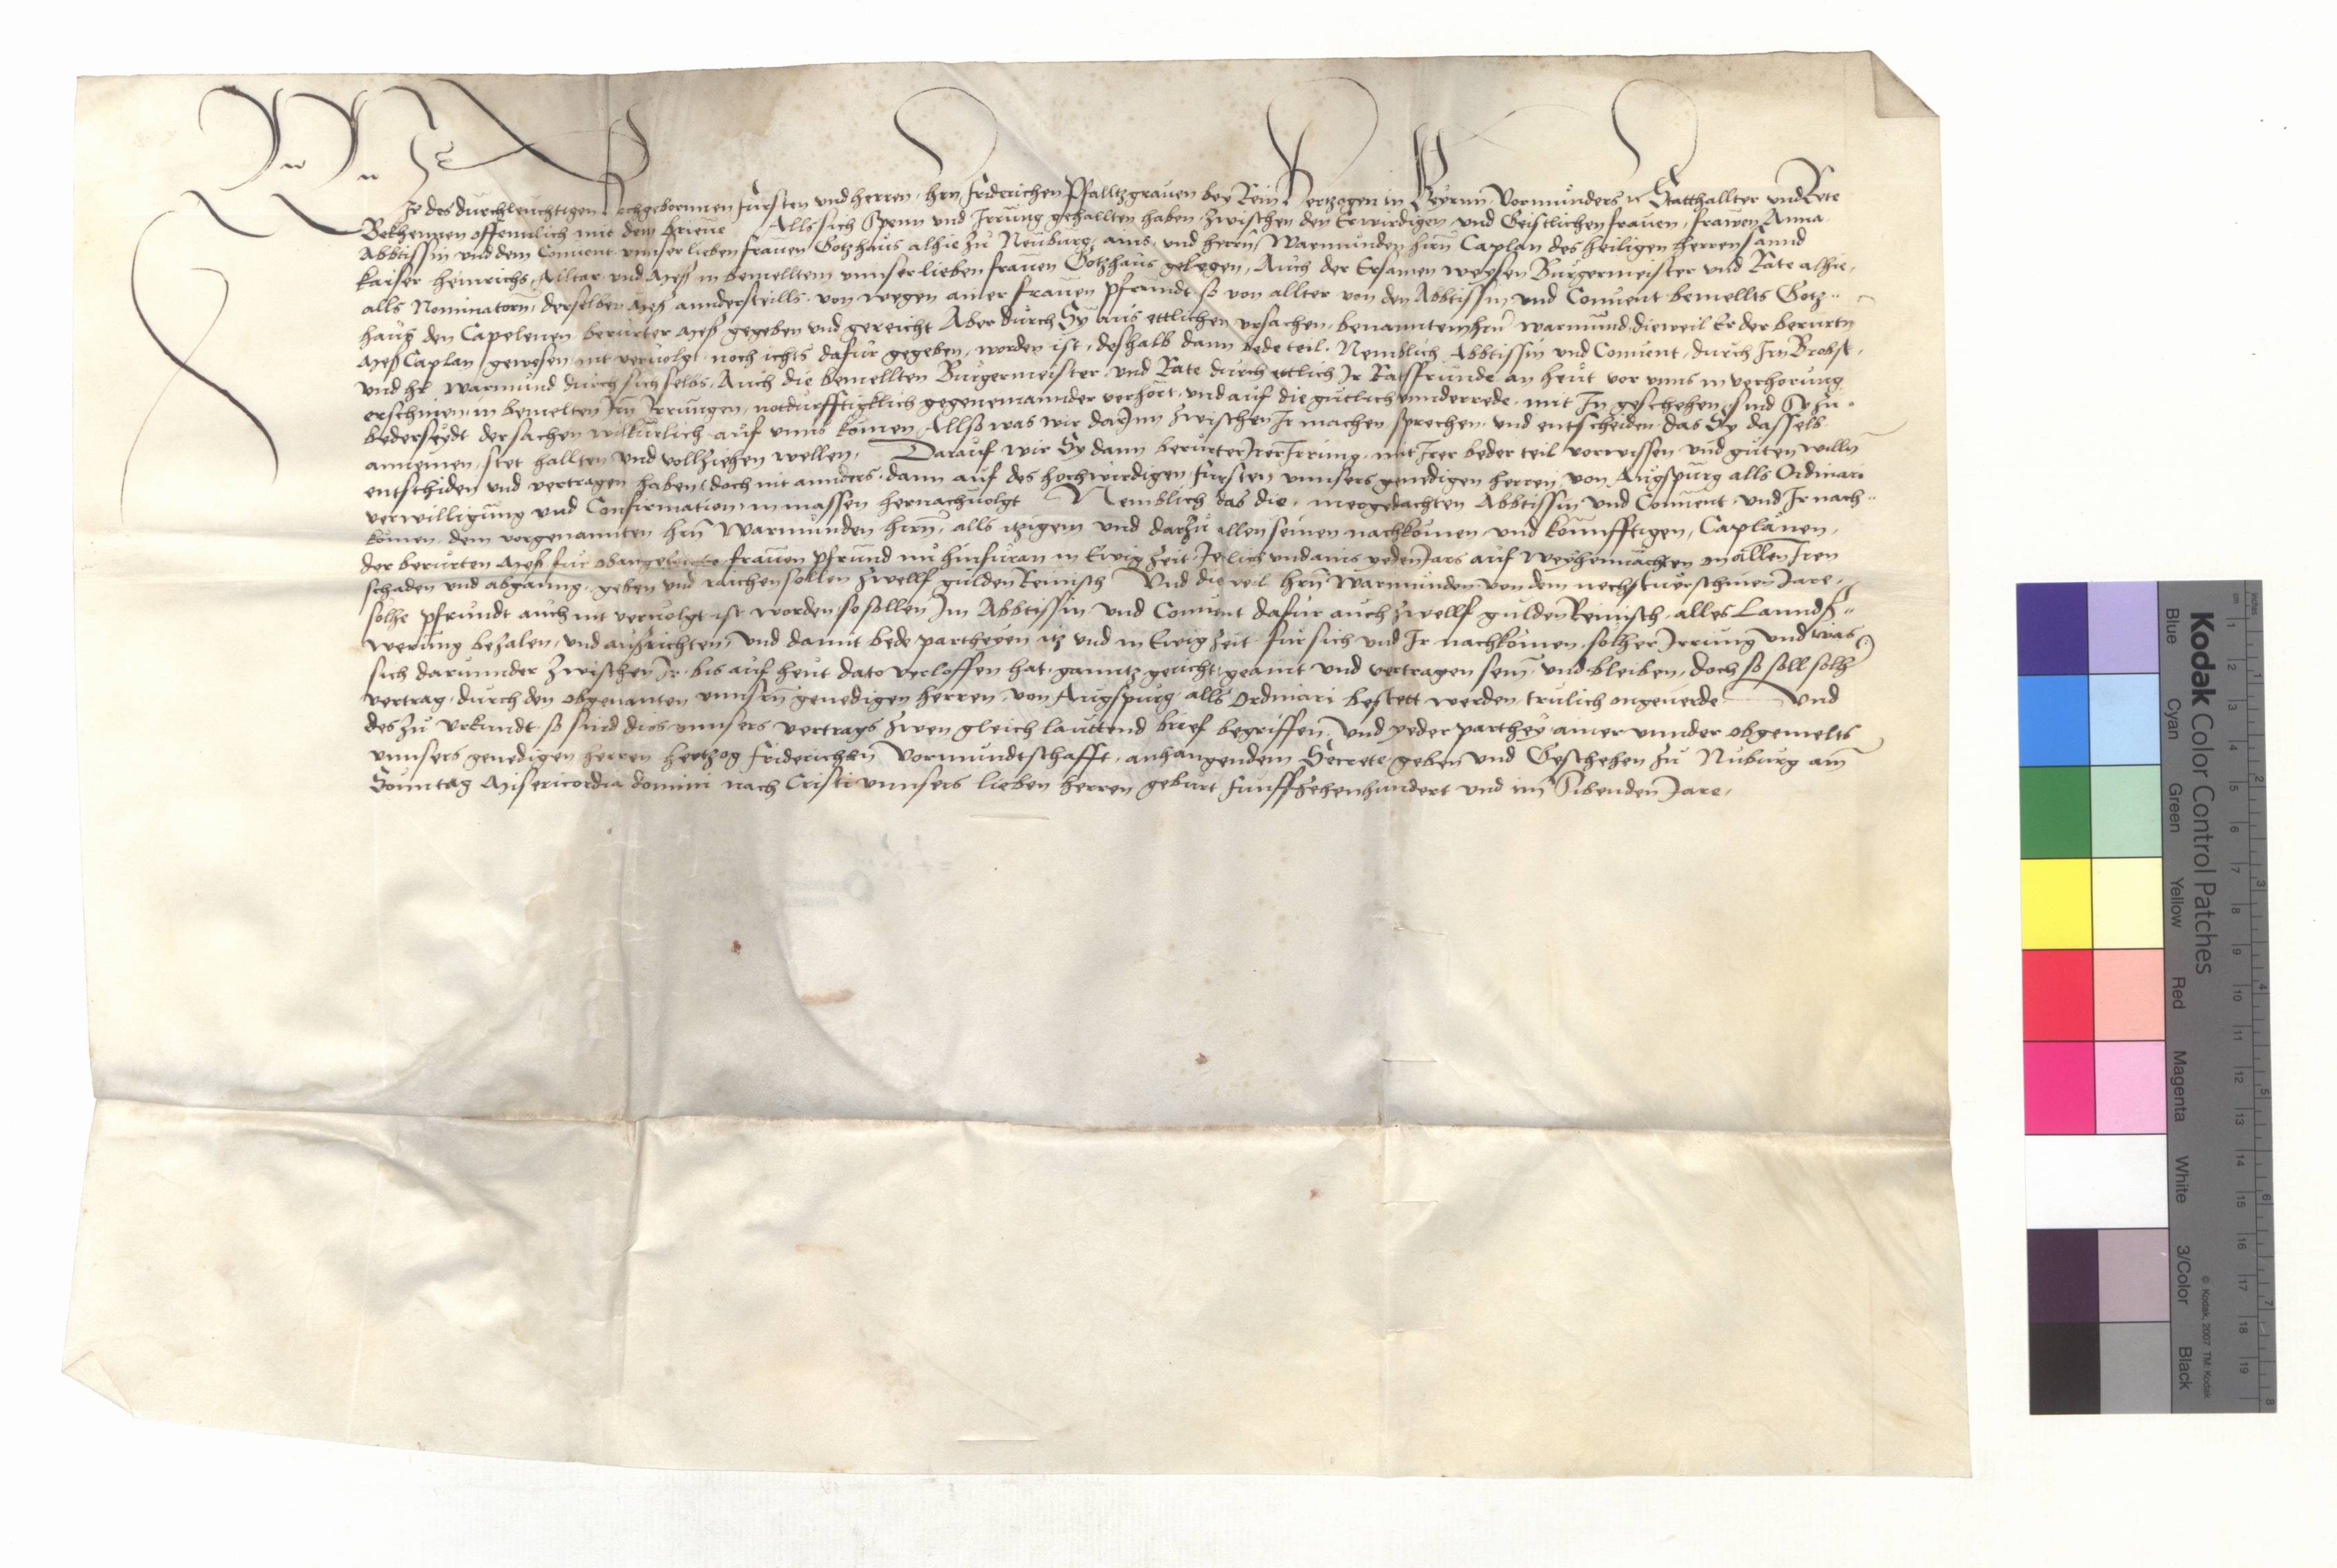 Wir des durchleuchtigen Hochgebornnen fursten und herren, hrn friderichen Pfalltzgraven bey Rein Hertzogen in Beyrnn Vormunders rc Statthallter und Rete
Bekhennen offennlich mit dem brieve Alls sich Spenn und Irrung gehallten haben zwischen den Erwirdigen und Geistlichen frauen, frawen Anna
Abbtissin und dem Convent unnser lieben frauen Gotzhaus alhie zu Neuburg, ains, und herrn Warmunden hirn Caplan des heiligen herren sannd
kaiser heinrichs Alltar und Mess in bemelltem unnser lieben frauen Gotzhaus gelegen, Auch der Ersamen weysen Burgermeister und Rate alhie,
alls Nominatorn derselben Mess anndersteills von wegen ainer frauen pfrundt so von allter von den Abbtissin und Convent bemellts Gotz-
hauss den Capelenen berurter Mess gegeben und gereicht Aber durch Sy aus ettlichen ursachen, benanntem hrn warmund, dieweil Er der berurtn
Mess Caplan gewesen nit vervolgt noch ichts dafur gegeben, worden ist, deshalb dann bede teil, Nemblich Abbtissin und Convent, durch Irn Brobst,
und hr Warmund durch sich selbs, Auch die bemellten Burgermeister und Rate durch ettlich Ir Ratsfrunde an heut vor unns in verhorung
erschinen, in bemelten Irn Irrungen, notdurfftigklich gegeneinannder verhort, und auf die gutlich unnderrede, mit In geschehen, sind Sy zu
bederseydt der sachen willkurlich auf unns komen, Allso was wir darInn zwischen Ir machen sprechen, und entscheiden das Sy dasselb
annemen, stet hallten und vollziehen wellen, Darauf wir Sy dann berurter Irer Irrung, mit Irer beder teil vorwissen und guten willn
entschiden und vertragen haben, doch nit annders, dann auf des hochwirdigen fursten unnsers genedigen herren von Augspurg alls Ordinari
verwilligung und Confirmation in massen hernachvolgt Nemblich das die, mergedachten Abbtissin und Convent, und Ir nach-
komen, dem vorgenannten hrn Warmunden hirn, alls itzigem und darzu allen seinen nachkomen und konnfftigen, Caplanen,
der berurten Mess fur obangeregte frauen pfrund nu hinfuran in Ewig zeit Jerlich und ains yeden Jars auf Weyhennachten on allen Iren
schaden und abganng, geben und raichen sollen zwellf gulden Reinisch Und dieweil hrn Warmunden von dem nechstverschinen Jare,
solhe pfrundt auch nit vervolgt ist worden so sollen Im Abbtissin und Convent dafur auch zwellf gulden Reinisch, alles Lannds-
werung bezalen, und ausrichten, und damit bede partheyen itz und in Ewig zeit fur sich und Ir nachkomen, solher Irrung und was
sich darunnder zwischen Ir, bis auf heut dato verloffen hat, ganntz gericht, geaint und vertragen sein, und bleiben, doch so soll solher
vertrag, durch den obgenanten unnsrn genedigen herren, von Augspurg alls Ordinari bestett werden, trulich ongeverde Und
des zu urkundt so sind dits unnsers vertrags zwen gleich lauttend brief begriffen, und yeder parthey ainer unnder obgemelts
unnsers genedigen herren hertzog friderichen Vormundtschafft, anhangendem Secrete geben und Geschehen zu Nuburg am
Sonntag Misericordia domini nach Cristi unnsers lieben herren geburt funffzehenhundert und im Sibenden Jare,
Kodak Color Control Patches
Blue Cyan Green Yellow Red Magenta White 3/Color Black
© Kodak, 2007 TM: Kodak